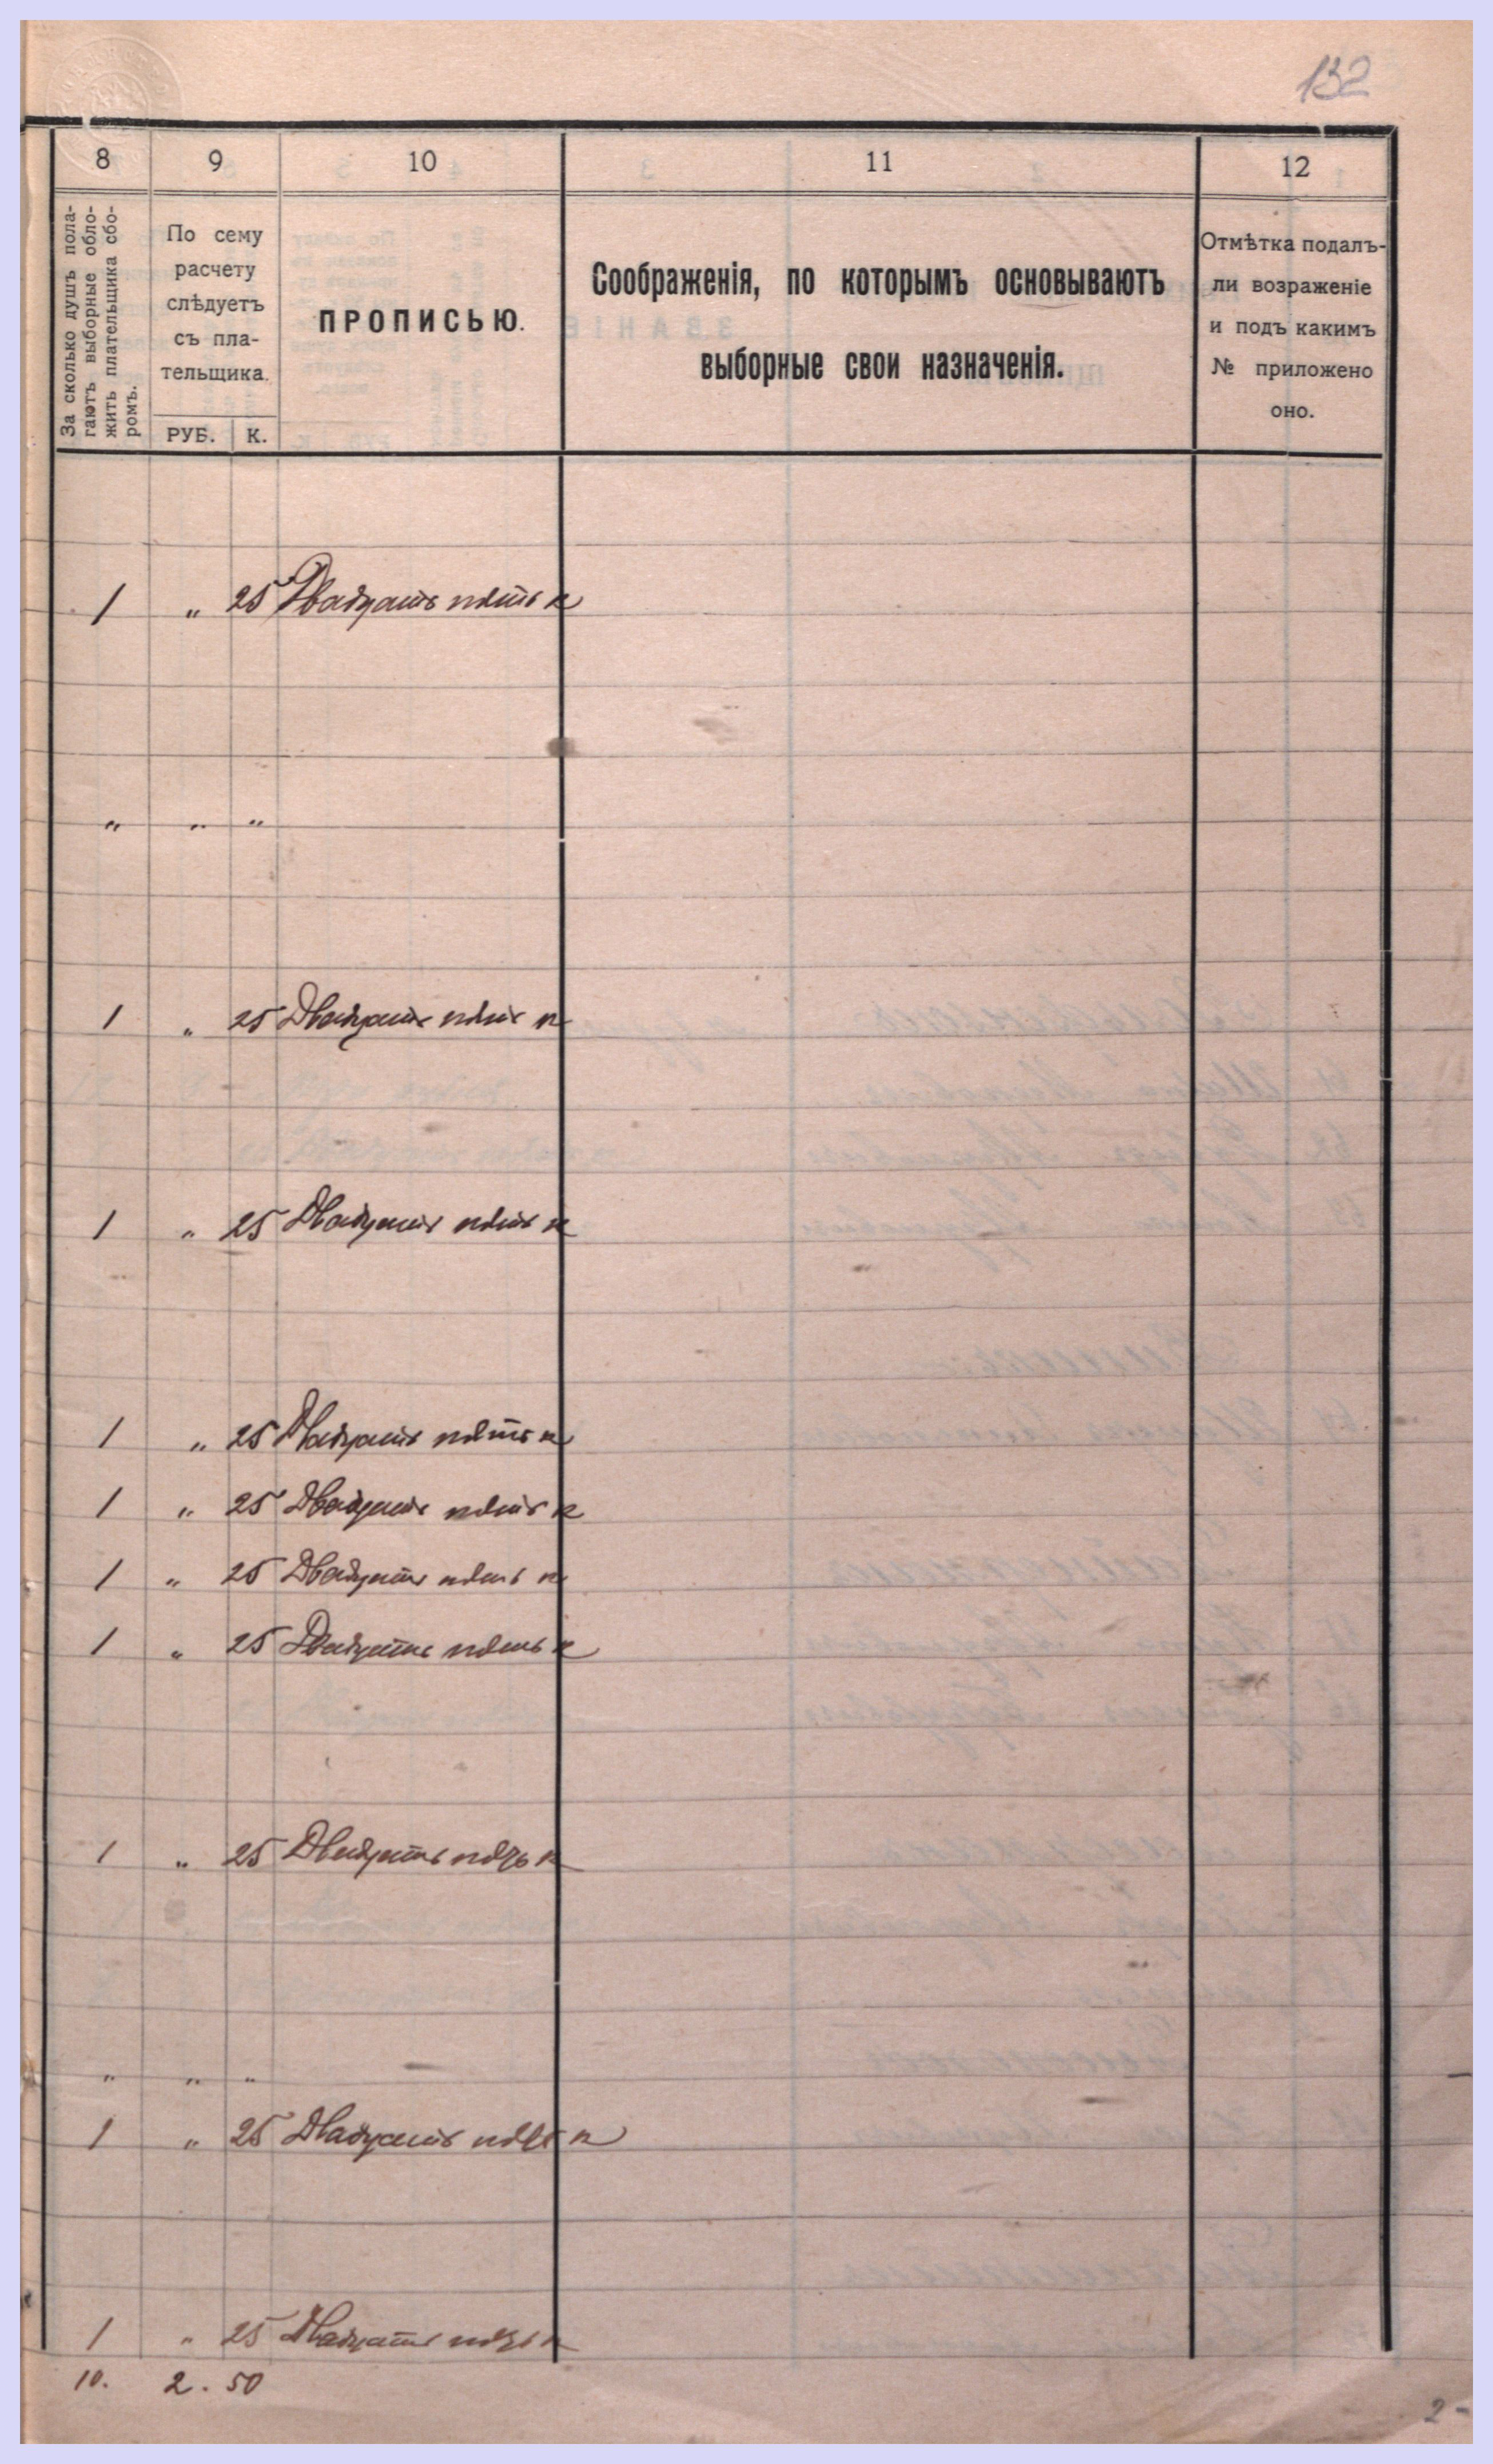 132
8 9 10 11 12
За сколько душъ пола-
гаютъ выборные обло-
жить плательщика сбо-
ромъ.
По сему
расчету
слѣдуетъ
съ пла-
тельщика.
РУБ. К.
ПРОПИСЬЮ.
Соображенія, по которымъ основываютъ
выборные свои назначенія.
Отмѣтка подалъ-
ли возраженіе
и подъ какимъ
№ приложено
оно.
1 " 25 Двадцать пять к
" " "
1 " 25 Двадцать пять к
1 " 25 Двадцать пять к
1 " 25 Двадцать пять к
1 " 25 Двадцать пять к
1 " 25 Двадцать пять к
1 " 25 Двадцать пять к
1 " 25 Двадцать пять к
" " "
1 " 25 Двадцать пять к
1 " 25 Двадцать пять к
10. 2. 50
2 -